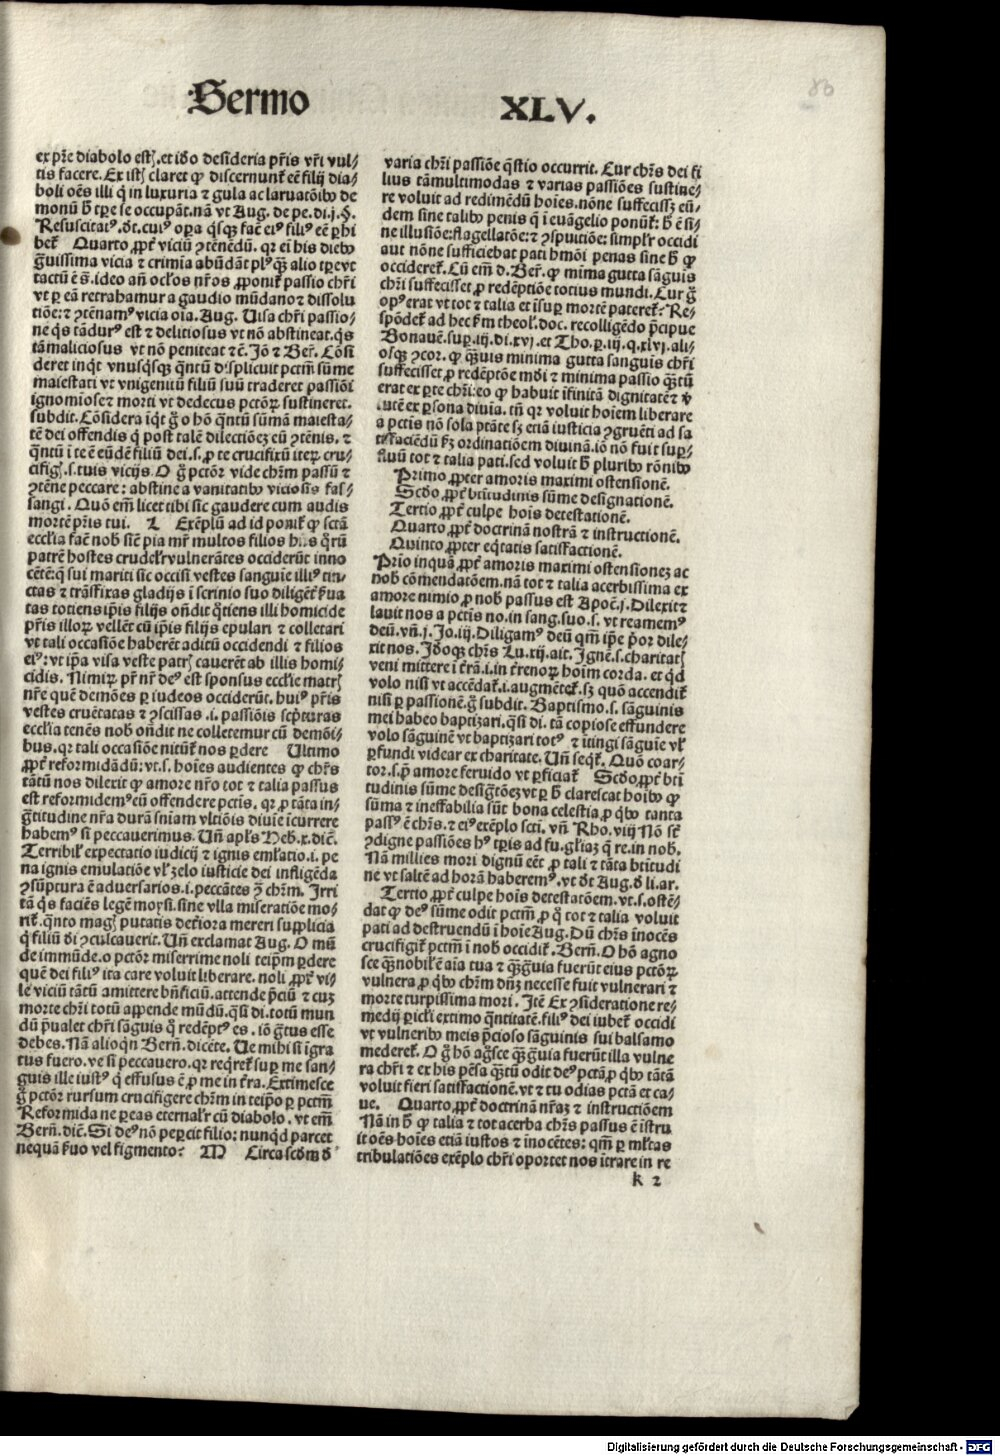 Sermo XLV.
86
ex pr̃e diabolo estꝭ. et iđo desideria pr̃is vr̃i vul⸗
tis facere. Ex istꝭ claret ꝙ discernunt̃ eẽ filij dia⸗
boli oẽs illi q̃ in luxuria ⁊ gula ac laruatõibꝰ de
monũ ħ tꝑe se occupãt. nã vt Aug. de pe. di. j. §.
Resuscitatꝰ. đt. cuiꝰ oꝑa q̃sqꝫ facit eiꝰ filiꝰ eẽ ꝑhi
bet̃. Quarto ꝓpt̃ viciũ ꝯtenẽdũ. qꝛ ei his diebꝰ
g̃uissima vicia ⁊ crimĩa abũdãt plꝰ qꝫ̃ alio tꝑe vt
tactũ ẽ §. ideo añ ocl̃os nr̃os ꝓponit̃ passio chr̃i
vt ꝑ eã retrahamur a gaudio mũdano ⁊ dissolu
tiõe: ⁊ ꝯtẽnamꝰ vicia oĩa. Aug. Uisa chr̃i passio⸗
ne q̃s tã durꝰ est ⁊ delitiosus vt nõ abstineat. q̃s
tã maliciosus vt nõ peniteat ⁊ č. Iõ ⁊ Ber̃. Cõsi
deret inqt̃ vnusq̃sqꝫ q̃ntũ displicuit pctm̃ sũme
maiestati vt vnigenitũ filiũ suũ traderet passiõi
ignomĩose ⁊ morti vt dedecus pctõꝝ sustineret.
subdit. Cõsidera ĩqt̃ g̃ o hõ q̃ntũ sũmã maiesta⸗
tẽ dei offendis q̃ post talẽ dilectiõeꝫ eũ ꝯtẽnis. ⁊
q̃ntũ ĩ te ẽ eũdẽ filiũ dei. s. ꝓ te crucifixũ iteꝝ cru⸗
cifigꝭ. s. tuis vicijs. O g̃ pctõr vide chr̃m passũ ⁊
ꝯtẽne peccare: abstine a vanitatibꝰ viciosis fas⸗
sangi. Quõ em̃ licet tibi sic gaudere cum audis
mortẽ pr̃is tui. L Exẽplũ ad id ponit̃ ꝙ sctã
eccl̃ia facit nob̃ sič pia mr̃ multos filios hñs q̃rũ
patrẽ hostes crudel̃r vulnerãtes occiderũt inno
cẽtẽ: q̃ sui mariti sic occisi vestes sanguĩe illiꝰ tin⸗
ctas ⁊ trãsfixas gladijs ĩ scrinio suo diligẽt̃ ẜua
tas totiens ip̃is filijs oñdit q̃tiens illi homicide
pr̃is illoꝝ vellẽt cũ ip̃is filijs epulari ⁊ colletari
vt tali occasiõe haberẽt aditũ occidendi ⁊ filios
eiꝰ: vt ip̃a visa veste patrꝭ cauerẽt ab illis homi⸗
cidis. Nimiꝝ pr̃ nr̃ deꝰ est sponsus eccl̃ie matrꝭ
nr̃e quẽ demões ꝑ iudeos occiderũt. huiꝰ pr̃is
vestes cruẽtatas ⁊ ꝯscissas .i. passiõis scp̃turas
eccl̃ia tenẽs nob̃ oñdit ne colletemur cũ demõi⸗
bus. qꝛ tali occasiõe nitũt̃ nos ꝑdere Ultimo
ꝓpt̃ reformidãdũ: vt. s. hoĩes audientes ꝙ chr̃s
tãtũ nos dilexit ꝙ amore nr̃o tot ⁊ talia passus
est reformidemꝰ eũ offendere pctis. qꝛ ꝓ tãta in⸗
g̃titudine nr̃a durã sniam vltiõis diuĩe ĩcurrere
habemꝰ si peccauerimus. Uñ apl̃s Heb. x. dič.
Terribil̃ expectatio iudicij ⁊ ignis eml̃atio .i. pe
na ignis emulatiõe vl̃ zelo iusticie dei infligẽda
ꝯsũptura ẽ aduersarios .i. peccãtes ꝯ̃ chr̃m. Irri
tã q̃s faciẽs legẽ moysi. sine vlla miseratiõe mo⸗
rit̃. q̃nto magꝭ putatis deťiora mereri supplicia
q̃ filiũ đi ꝯculcauerit. Uñ exclamat Aug. O mũ
de immũde. o pctõr miserrime noli teip̃m ꝑdere
quẽ dei filiꝰ ita care voluit liberare. noli ꝓpt̃ vi⸗
le viciũ tãtũ amittere bñficiũ. attende p̃ciũ ⁊ cuꝫ
morte chr̃i totũ appende mũdũ. q̃si di. totũ mun
dũ p̃ualet chr̃i sãguis q̃ redẽptꝰ es. iõ g̃tus esse
debes. Nã alioqñ Berñ. dicẽte. Ue mihi si ĩgra
tus fuero. ve si peccauero. qꝛ req̃ret̃ suꝑ me san⸗
guis ille iustꝰ q̃ effusus ẽ ꝓ me in ťra. Extimesce
g̃ pctõr rursum crucifigere chr̃m in teip̃o ꝑ pctm̃.
Reformida ne ꝑeas eternal̃r cũ diabolo. vt em̃
Berñ. dič. Si deꝰ nõ peꝑcit filio: nunqd̃ parcet
nequã ẜuo vel figmento? M Circa scđm đ
varia chr̃i passiõe q̃stio occurrit. Cur chr̃s dei fi
lius tãmultimodas ⁊ varias passiões sustine⸗
re voluit ad redimẽdũ hoĩes. nõne suffecissꝫ eũ⸗
dem sine talibꝰ penis q̃ ĩ euãgelio ponũt̃: ħ ẽ si⸗
ne illusiõe: flagellatõe: ⁊ ꝯspuitiõe: simpl̃r occidi
aut nõne sufficiebat pati hmõi penas sine ħ ꝙ
occideret̃. Cũ em̃ đ. Ber̃. ꝙ mĩma gutta sãguis
chr̃i suffecisset ꝓ redẽptiõe totius mundi. Cur g̃
opꝰ erat vt tot ⁊ talia et ĩsuꝑ mortẽ pateret̃? Re⸗
spõdet̃ ad hec ẜm theol̃. doc. recolligẽdo p̃cipue
Bonauẽ. suꝑ. iij. di. xvj. et Tho. ꝑ. iij. q. xlvj. ali⸗
osqꝫ ꝯcor. ꝙ qꝫ̃uis minima gutta sanguis chr̃i
suffecisset ꝓ redẽptõe mđi ⁊ minima passio qꝫ̃tũ
erat ex ꝑte chr̃i: eo ꝙ habuit ĩfinitã dignitatẽ ⁊ v̓
tutẽ ex ꝑsona diuĩa. tñ qꝛ voluit hoĩem liberare
a pctĩs nõ sola ptãte sꝫ etiã iusticia ꝯgruẽti ad sa
tisfaciẽdũ ẜꝫ ordinatiõem diuinã. iõ nõ fuit suꝑ⸗
fluũ tot ⁊ talia pati. sed voluit ħ pluribꝰ rõnibꝰ
Primo ꝓpter amoris maximi ostensionẽ.
Scđo ꝓpt̃ bt̃itudinis sũme designationẽ.
Tertio ꝓpt̃ culpe hoĩs detestationẽ.
Quarto ꝓpt̃ doctrinã nostrã ⁊ instructionẽ.
Quinto ꝓpter eq̃tatis satisfactionẽ.
Prĩo inquã ꝓpt̃ amoris maximi ostensioneꝫ ac
nob̃ cõmendatõem. nã tot ⁊ talia acerbissima ex
amore nimio ꝓ nob̃ passus est Apoč. j. Dilexit ⁊
lauit nos a pctẽs no. in sang. suo. s. vt reamemꝰ
deũ. vñ. j. Jo. iij. Diligamꝰ deũ qm̃ ip̃e p̃or dile⸗
xit nos. Jđoqꝫ chr̃s Lu. xij. ait. Jgnẽ. s. charitatꝭ
veni mittere ĩ ťrã. i. in ťrenoꝝ hoĩm corda. et qđ
volo nisi vt accẽdat̃. i. augmẽtet̃. sꝫ quõ accendit̃
nisi ꝑ passionẽ. g̃ subdit. Baptismo. s. sãguinis
mei habeo baptizari. q̃si di. tã copiose effundere
volo sãguinẽ vt baptizari totꝰ ⁊ ĩtingi sãguĩe vl̃
ꝑfundi videar ex charitate. Uñ seqt̃. Quõ coar⸗
tor. s. p̃ amore feruido vt ꝑficiat̃ Scđo ꝓpt̃ bt̃i
tudinis sũme desig̃tõeꝫ vt ꝑ ħ clarescat hoĩbꝰ ꝙ
sũma ⁊ ineffabilia sũt bona celestia ꝓ q̃bꝰ tanta
passꝰ ẽ chr̃s. ⁊ eiꝰ exẽplo scti. vñ Rho. viij Nõ st̃
ꝯdigne passiões hꝰ tꝑis ad fu. gl̃iaꝫ q̃ re. in nob.
Nã millies mori dignũ eẽt ꝓ tali ⁊ tãta bt̃itudi
ne vt saltẽ ad horã haberemꝰ. vt đt Aug. đ li. ar.
Tertio ꝓpt̃ culpe hoĩs detestatõem. vt. s. ostẽ⸗
dat ꝙ deꝰ sũme odit pctm̃ ꝓ q̃ tot ⁊ talia voluit
pati ad destruendũ ĩ hoĩe Aug. Dũ chr̃s ĩnocẽs
crucifigit̃ pctm̃ ĩ nob̃ occidit̃. Berñ. O hõ agno
sce qꝫ̃ nobil̃ ẽ aĩa tua ⁊ qꝫ̃ g̃uia fuerũt eius pctõꝝ
vulnera ꝓ q̃bꝰ chr̃m dñꝫ necesse fuit vulnerari ⁊
morte turpissima mori. Jtẽ Ex ꝯsideratione re⸗
medij ꝑicl̃i extimo q̃ntitatẽ. filiꝰ dei iubet̃ occidi
vt vulneribꝰ meis p̃cioso sãguinis sui balsamo
mederet̃. O g̃ hõ ag̃sce qꝫ̃ g̃uia fuerũt illa vulne
ra chr̃i ⁊ ex his pẽsa qꝫ̃tũ odit deꝰ pctã ꝓ q̃bꝰ tãtã
voluit fieri satisfactionẽ. vt ⁊ tu odias pctã et ca⸗
ue. Quarto ꝓpt̃ doctrinã nr̃aꝫ ⁊ instructiõem
Nã in ħ ꝙ talia ⁊ tot acerba chr̃s passus ẽ instru
it oẽs hoĩes etiã iustos ⁊ ĩnocẽtes: qm̃ ꝑ ml̃tas
tribulatiões exẽplo chr̃i oportet nos ĩtrare in re
k 2
Digitalisierung gefördert durch die Deutsche Forschungsgemeinschaft - DFG